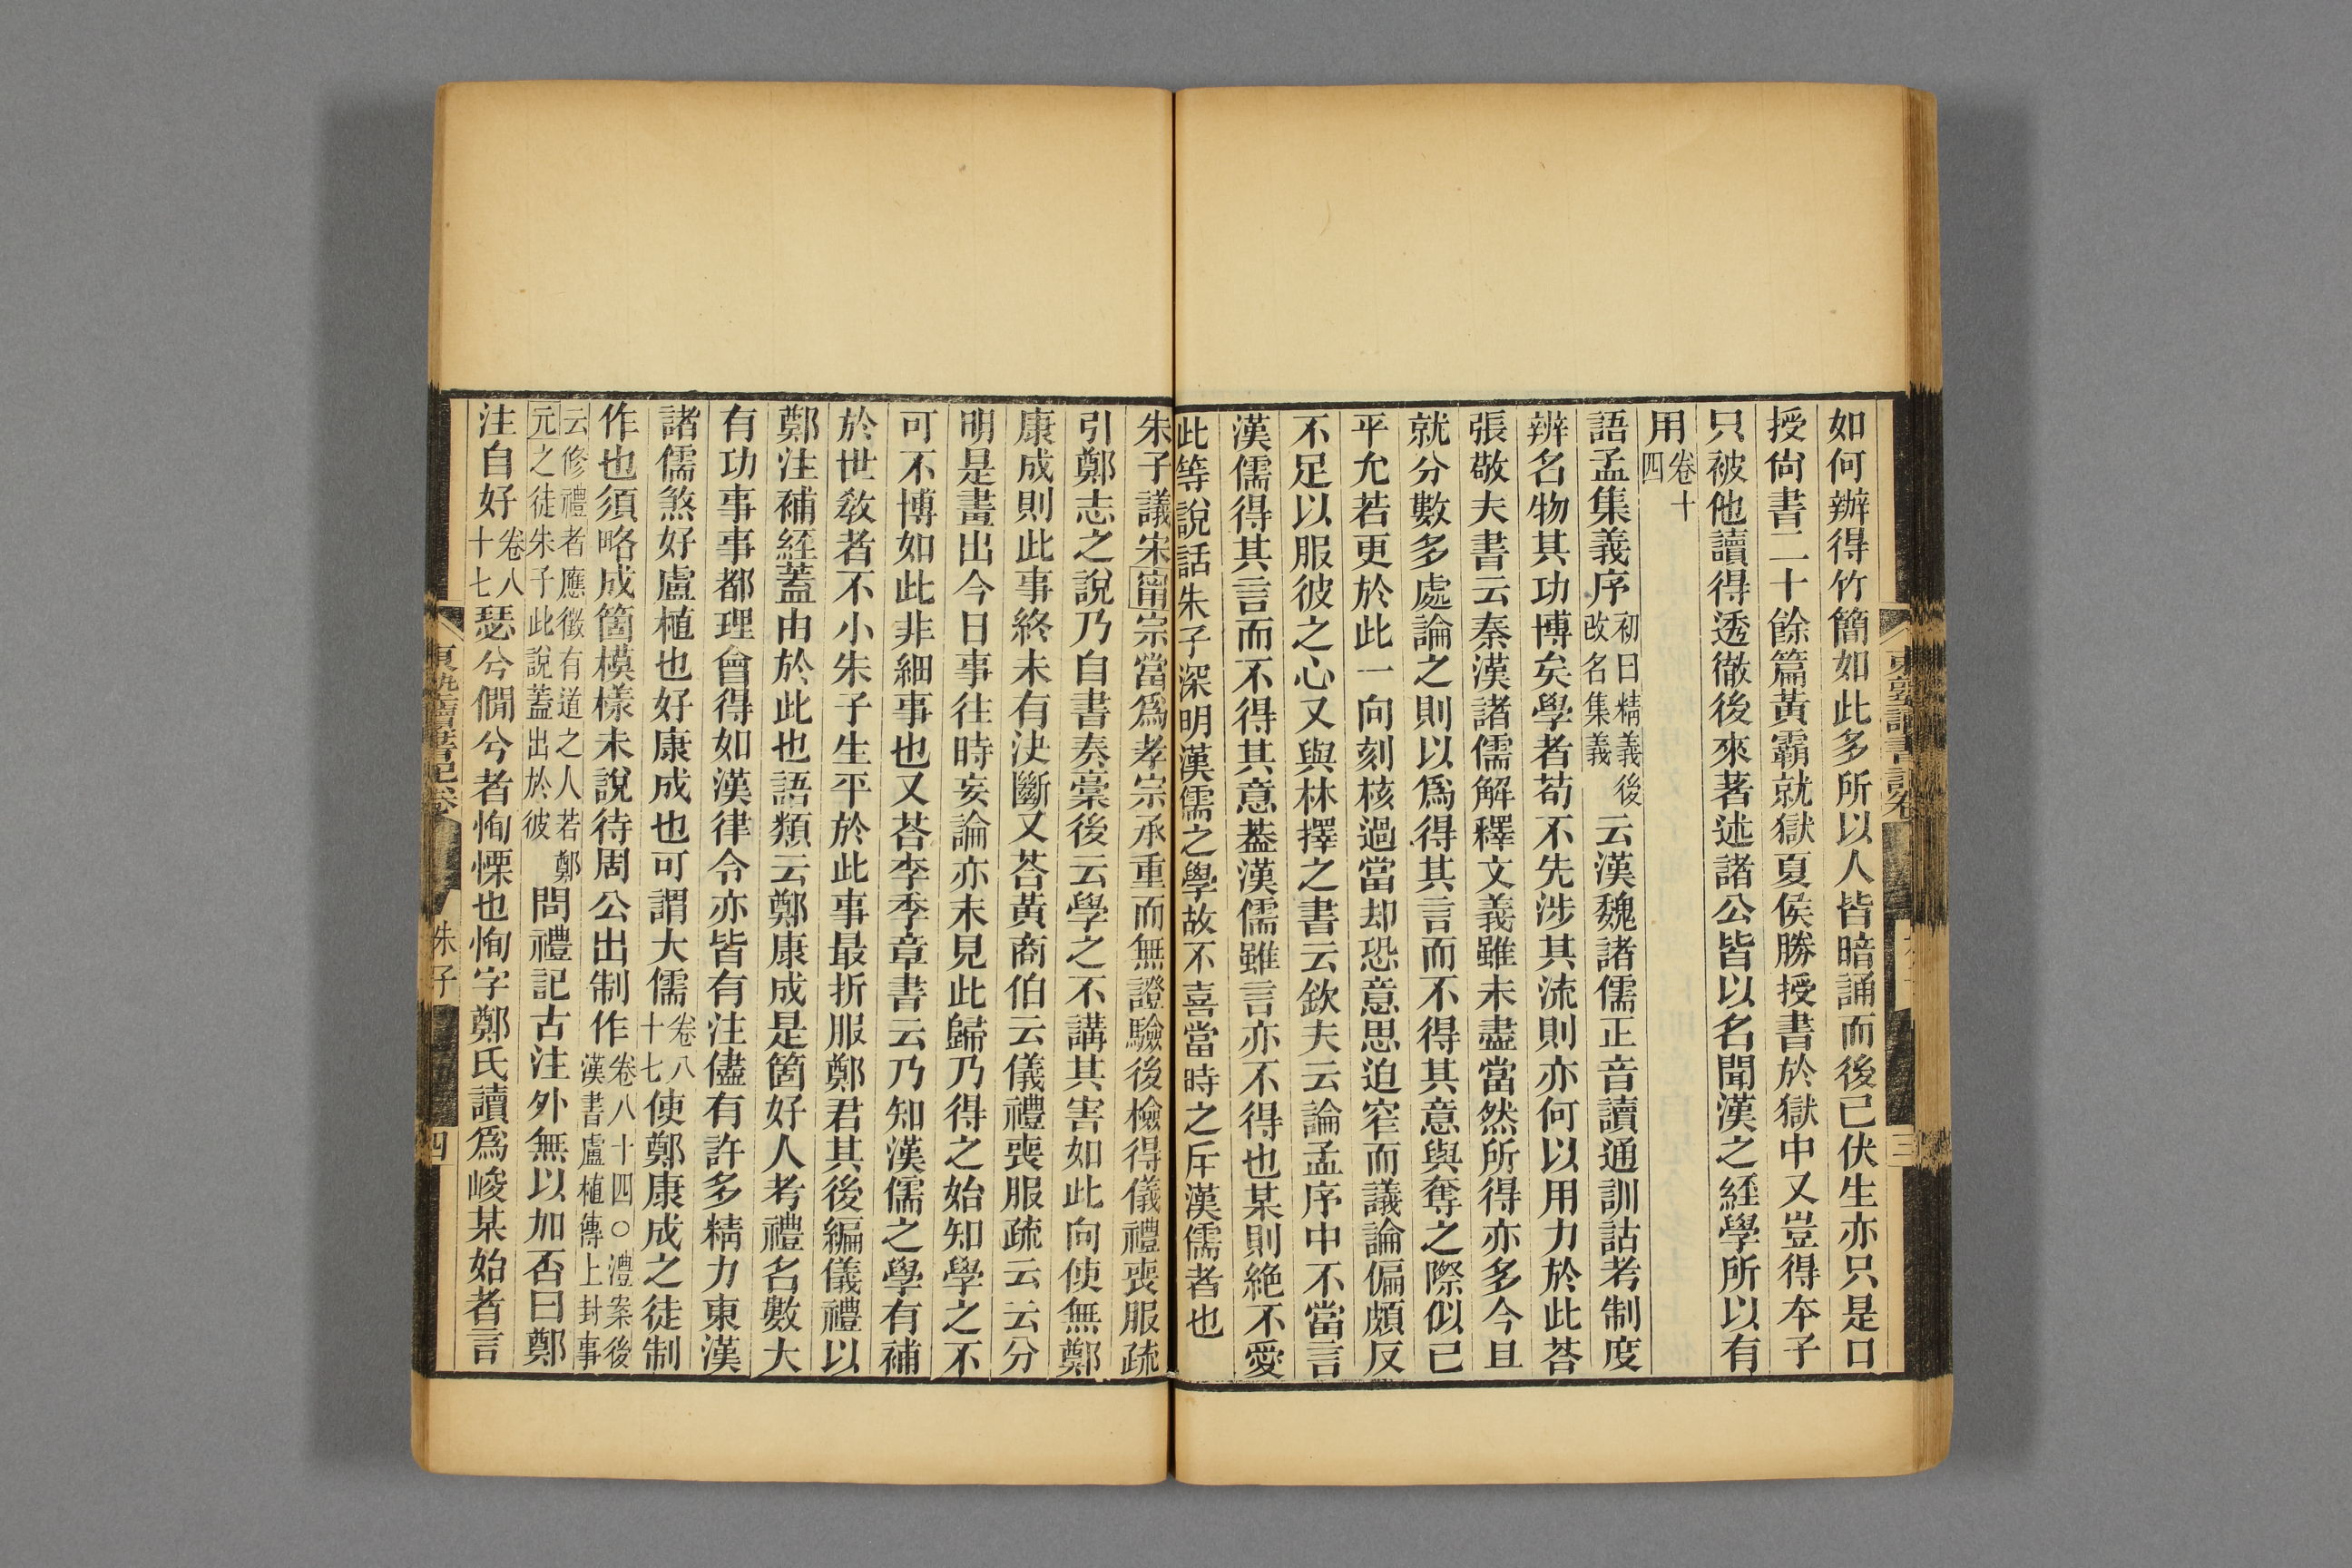 如何辦得竹簡如此多所以人皆暗誦而後已伏生亦只是口
授尙書二十餘篇黃霸就獄夏侯勝授書於獄中又豈得本子
只被他讀得透徹後來著述諸公皆以名聞漢之經學所以有
用卷十四
語孟集義序初曰精義後改名集義云漢魏諸儒正音讀通訓詁考制度
辨名物其功博矣學者苟不先涉其流則亦何以用力於此荅
張敬夫書云秦漢諸儒解釋文義雖未盡當然所得亦多今且
就分數多處論之則以爲得其言而不得其意與奪之際似已
平允若更於此一向刻核過當却恐意思迫窄而議論偏頗反
不足以服彼之心又與林擇之書云欽夫云論孟序中不當言
漢儒得其言而不得其意葢漢儒雖言亦不得也某則絶不愛
此等說話朱子深明漢儒之學故不喜當時之斥漢儒者也
朱子議宋甯宗當爲孝宗承重而無證驗後檢得儀禮喪服疏
引鄭志之說乃自書奏稾後云學之不講其害如此向使無鄭
康成則此事終未有決斷又荅黃商伯云儀禮喪服疏云云分
明是畫出今日事往時妄論亦未見此歸乃得之始知學之不
可不博如此非細事也又荅李季章書云乃知漢儒之學有補
於世敎者不小朱子生平於此事最折服鄭君其後編儀禮以
鄭注補經蓋由於此也語類云鄭康成是箇好人考禮名數大
有功事事都理會得如漢律令亦皆有注儘有許多精力東漢
諸儒煞好盧植也好康成也可謂大儒卷八十七使鄭康成之徒制
作也須略成箇模樣未說待周公出制作卷八十四○澧案後漢書盧植傳上封事
云修禮者應徵有道之人若鄭元之徒朱子此說蓋出於彼問禮記古注外無以加否曰鄭
注自好卷八十七瑟兮僩兮者恂慄也恂字鄭氏讀爲峻某始者言
東塾讀書記卷
朱子
四
三